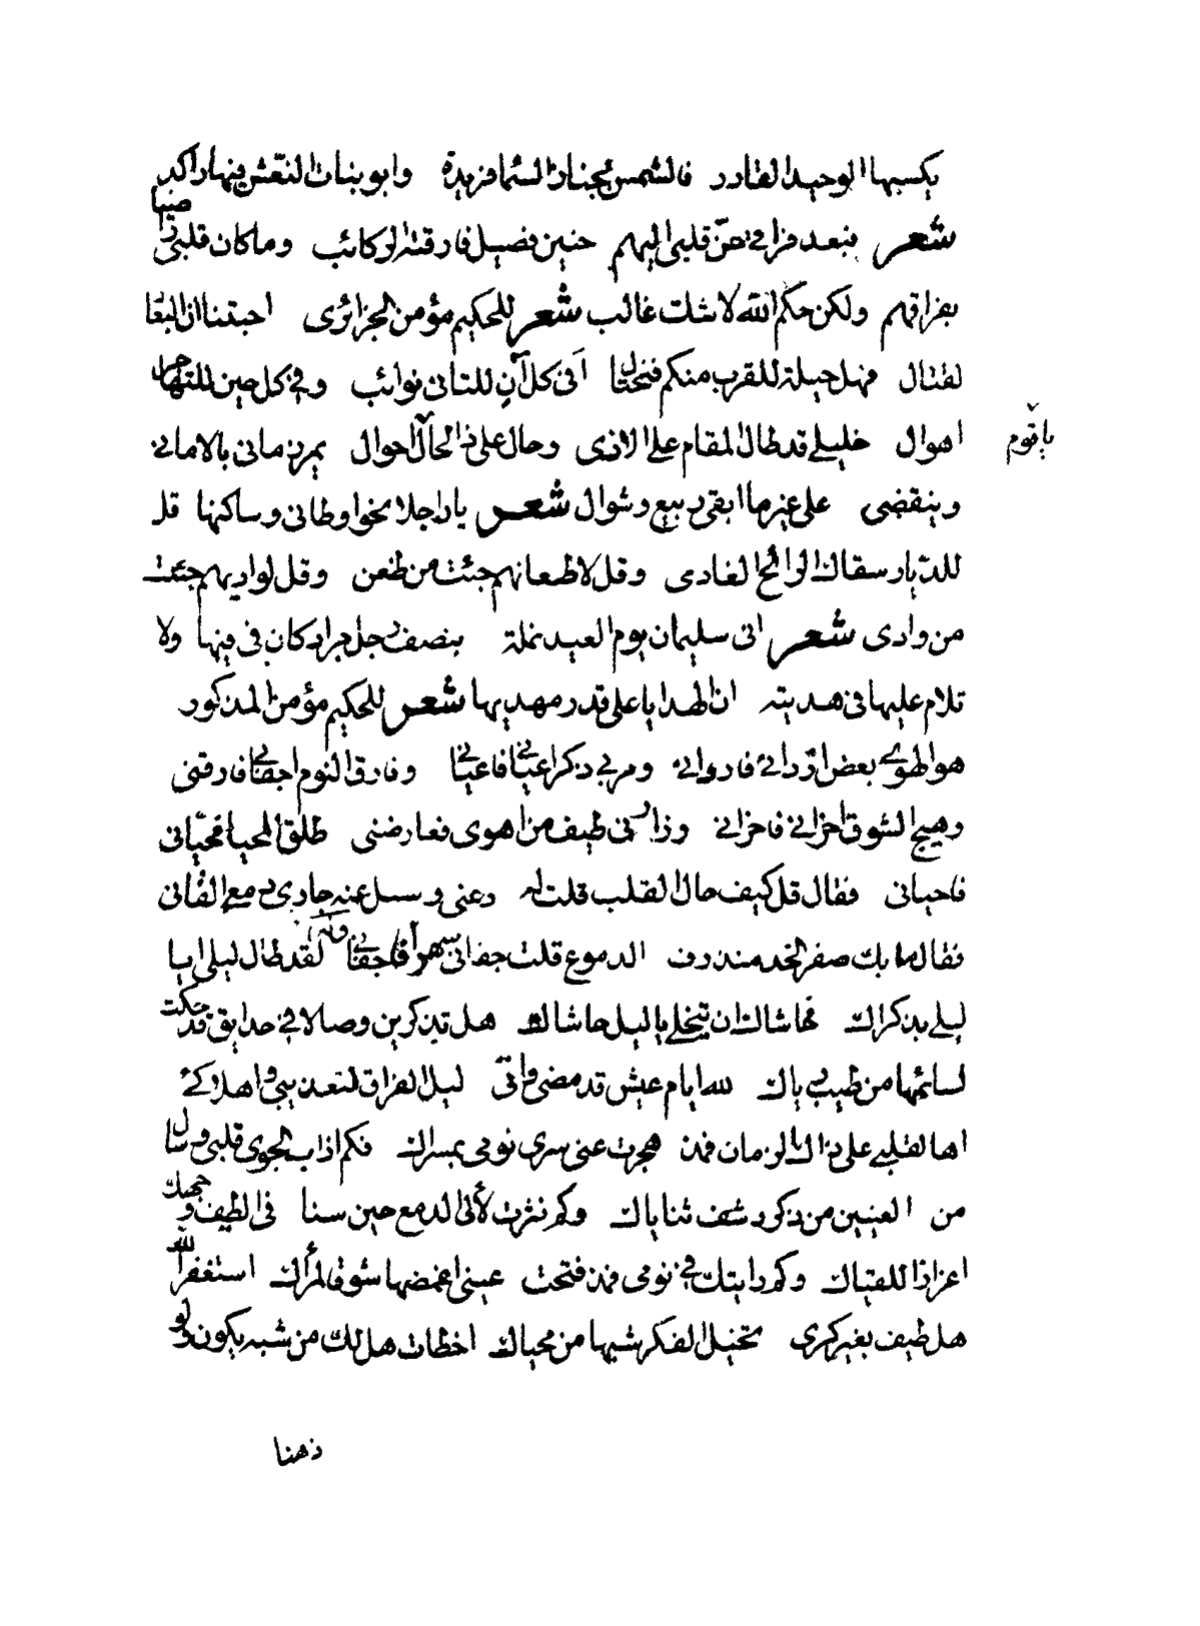 يكسبها الوحيد القادر فالشمس تجتاز السما فريدة وابو بنات النعش فيها راكد
شعر فبعد فراقي حن قلبي اليهم حنين فصيل فارقته الركائب وما كان قلبي راضيا
بفراقهم ولكن حكم الله لا شك غالب شعر للحكيم مؤمن الجزائري احبتنا ان البقا
لقتال فهل حيلة للقرب منكم فنحتال افي كل آن للتنائي نوائب وفي كل حين للتهاجر
اهوال خليلي قد طال المقام على الاذى وحال على ذا الحال يا قوم احوال يمر زماني بالاماني
وينقضي على غير ما ابقى ربيع وشوال شعر يا راجلا نحو اوطاني وساكنها قل
للديار سقاك الرائح الغادي وقل لاظعانهم جئت من ظعن وقل لواديهم جئت
من وادي شعر اتى سليمان يوم العيد نملة بنصف رجل جراد كان في فيها ولا
تلام عليها في هديته ان الهدايا على قدر مهديها شعر للحكيم مؤمن المذكور
هو الهوى بعض ارداني فارواني ومر بي ذكر اعياني فاعياني وفارق النوم اجفاني فارقني
وهيج الشوق احزاني فاحزاني وزارني طيف من اهوى فعارضني طلق المحيا فحياني
فاحياني فقال قل كيف حال القلب قلت له دعني وسل عنه جاري دمعي القاني
فقال ما بك صفر الخد منذرف الدموع قلت جفاني سهرا فاجفاني وله لقد طال ليلي ايا
ليلي بذكراك فحاشاك ان تبخلي يا ليل حاشاك هل تذكرين وصالا في حدايق قد حكت
نسائمها من طيب رياك لله ايام عيش قد مضى واتى ليل الفراق لتعذيبي واهلاكي
اها لقلبي على ذاك الزمان فمذ هجرت عني سرى نومي بمسراك فكم اذاب الجوى قلبي وسال
من العينين من ذكر رشف ثناياك وكم نثرت لألي الدمع حين سنا في الطيف وجهك
اعزازا للقياك وكم رايتك في نومي فمذ فتحت عيني اغمضها شوقا لمرأك استغفر الله
هل طيف بغير كرى تخيل الفكر شيها من محياك اخطات هل لك من شبه يكون ولو
يا قوم
ذهنا